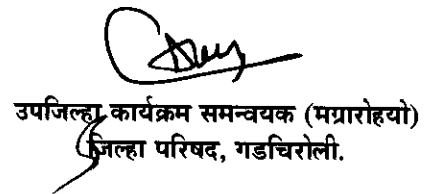 उपजिल्हा कार्यक्रम समन्वयक (मग्रारोहयो)
जिल्हा परिषद, गडचिरोली.